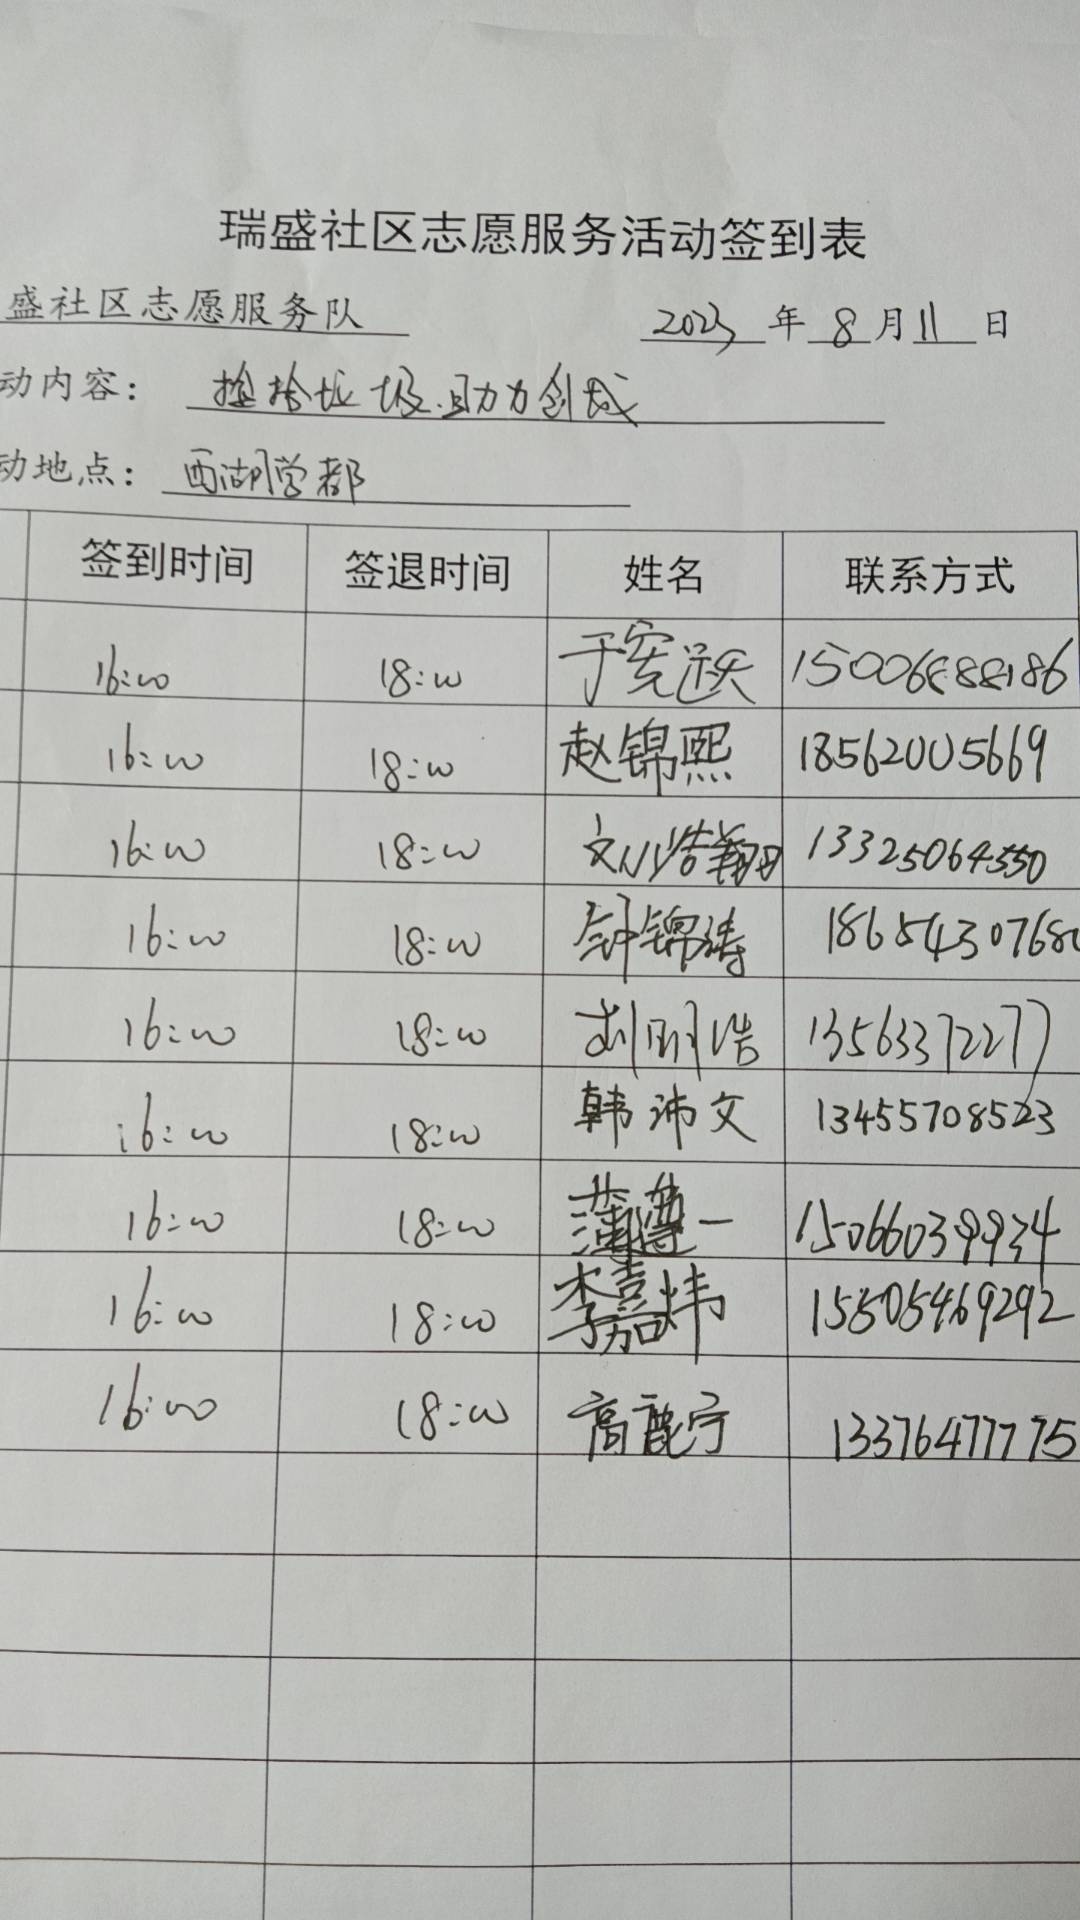 瑞盛社区志愿服务活动签到表
盛社区志愿服务队 2023年8月11日
动内容：捡拾垃圾.助力创城
动地点：西湖学都
签到时间 签退时间 姓名 联系方式
16:00 18:00 于宪跃 15006888186
16:00 18:00 赵锦熙 18562005669
16:00 18:00 刘浩翔 13325064550
16:00 18:00 钟锦涛 1865430768
16:00 18:00 刘明浩 13563372277
16:00 18:00 韩沛文 13455708523
16:00 18:00 蒲遵一 15066039934
16:00 18:00 李嘉炜 15505469292
16:00 18:00 高鹿宁 13376477775